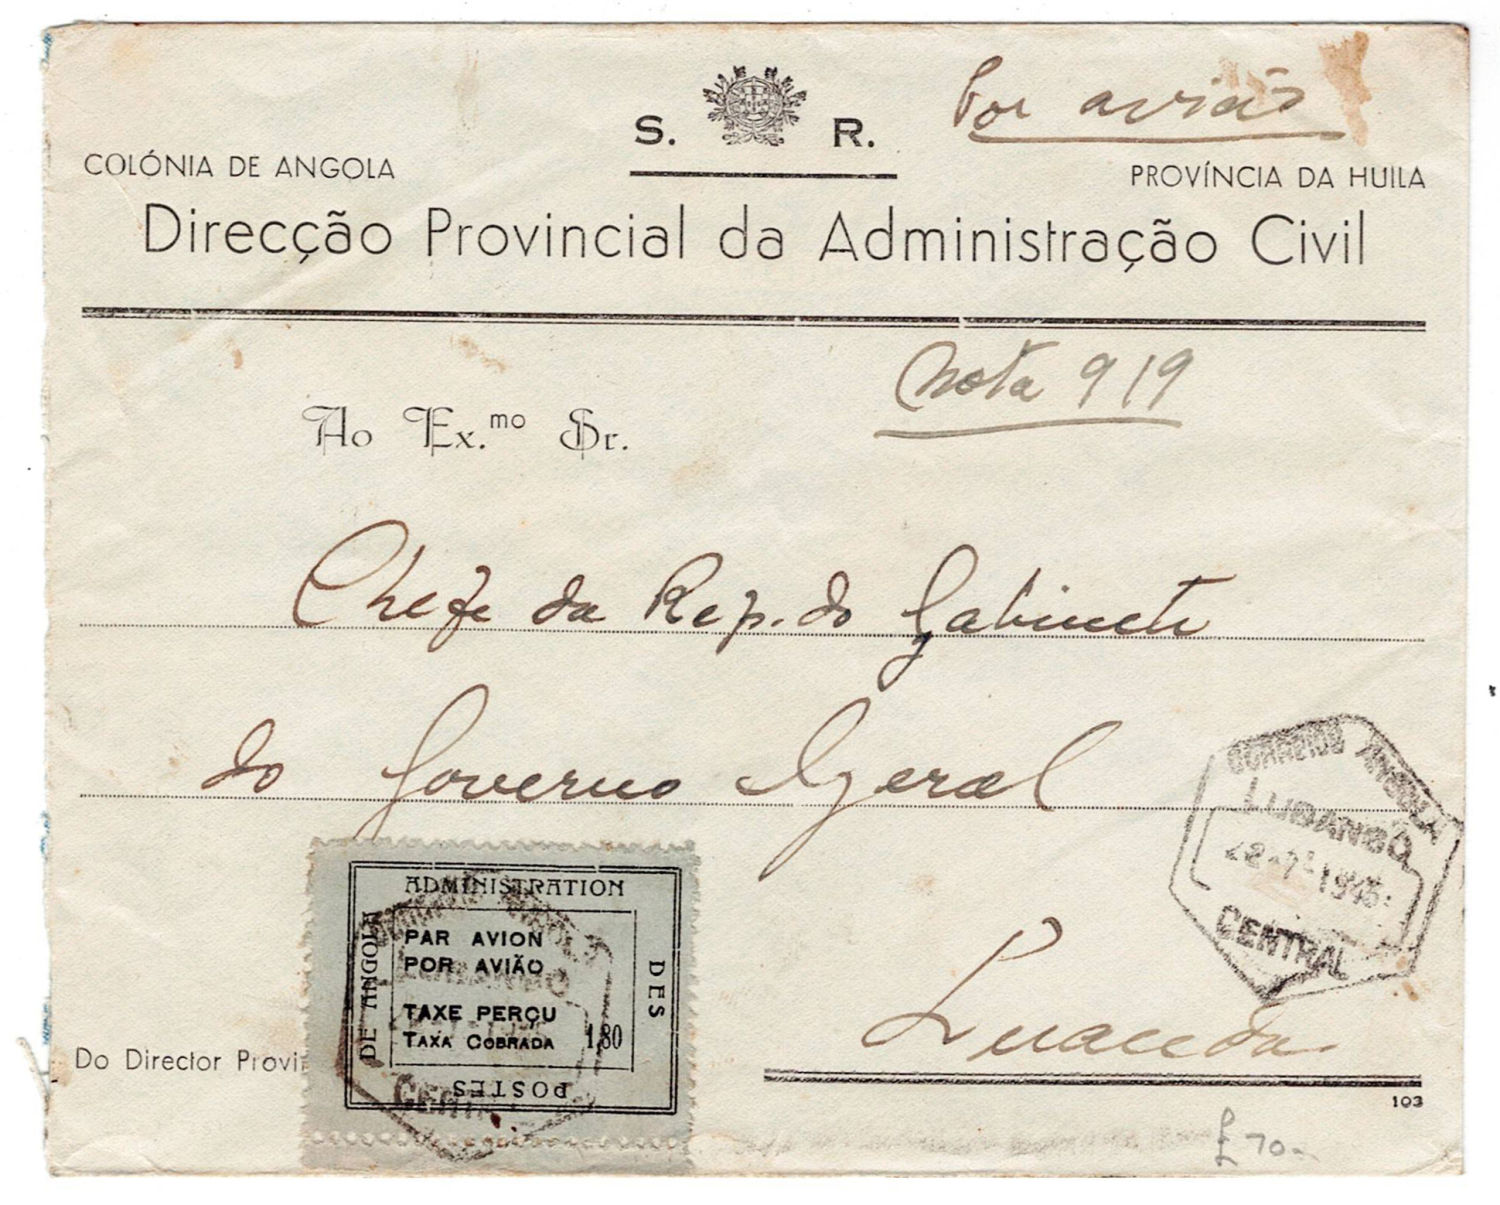 Por avião
S. R.
COLÓNIA DE ANGOLA
PROVÍNCIA DA HUILA
Direcção Provincial da Administração Civil
Nota 919
Ao Ex.mo Sr.
Chefe da Rep. do Gabinete
do Governo Geral
CORREIOS ANGOLA
LUBANGO
CENTRAL
ADMINISTRATION
DES
POSTES
DE ANGOLA
PAR AVION
POR AVIÃO
TAXE PERÇU
TAXA COBRADA 1,80
Luanda
Do Director Provin
103
£ 70-